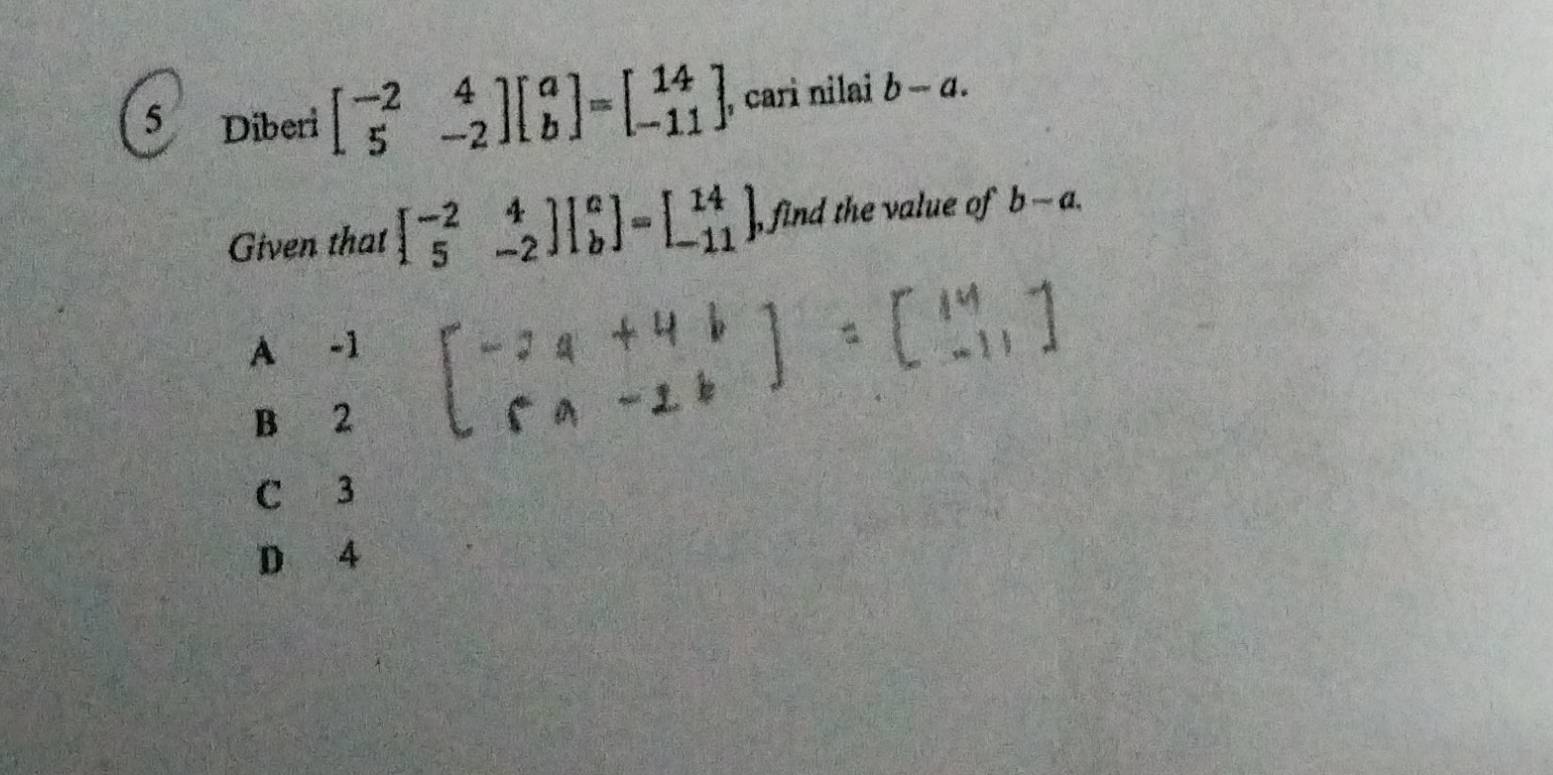 5 Diberi [−2 4 5 −2][a b]=[14 −11], cari nilai b − a.
Given that [−2 4 5 −2][a b]=[14 −11], find the value of b − a.
A -1
B 2
C 3
D 4
[-2a + 4b] = [14 -11]
5a - 2b